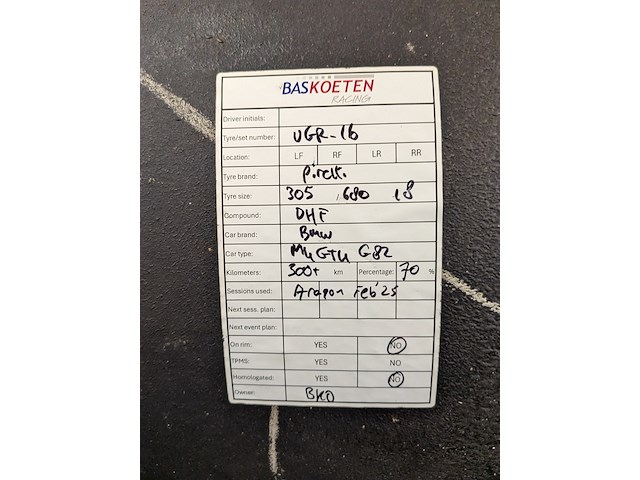 BASKOETEN
RACING
Driver initials:
Tyre/set number: UGR-16
Location: LF RF LR RR
Tyre brand: Pirelli
Tyre size: 305 680 18
Compound: DHF
Car brand: BMW
Car type: M4 GT4 G82
Kilometers: 300+ km Percentage: 70 %
Sessions used: Aragon Feb'25
Next sess. plan:
Next event plan:
On rim: YES NO
TPMS: YES NO
Homologated: YES NO
Owner: BKO